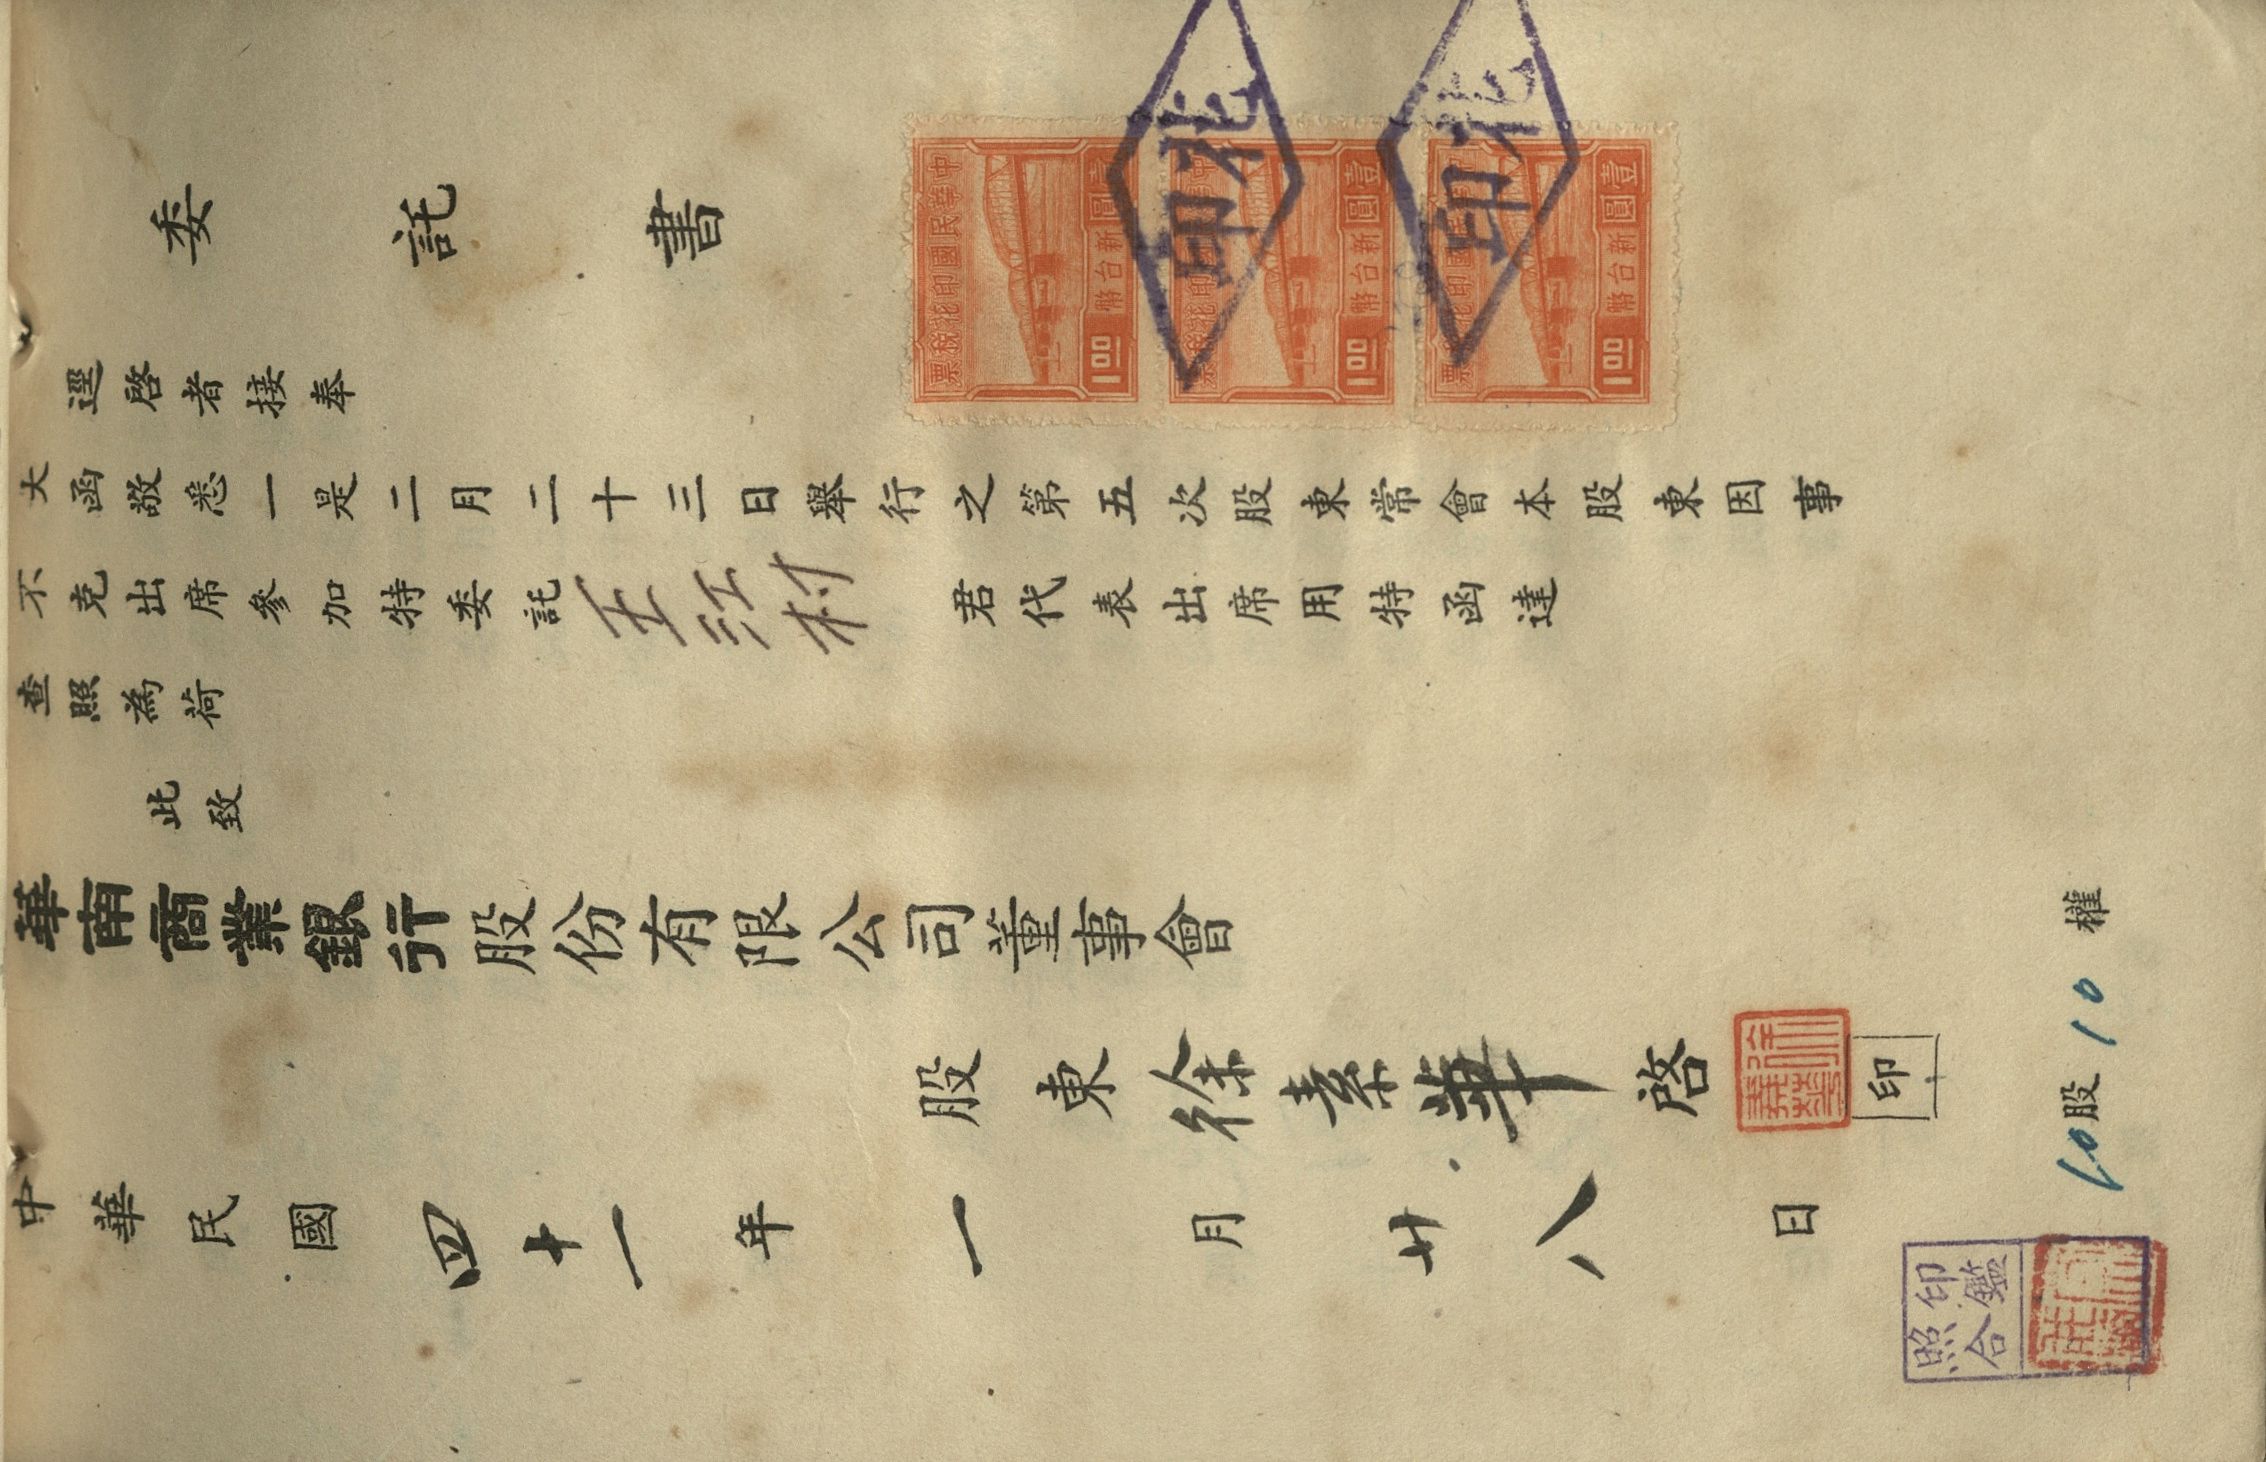 委託書
逕啓者接奉
大函敬悉一是二月二十三日舉行之第五次股東常會本股東因事
不克出席參加特委託王江村君代表出席用特函達
查照為荷
此致
華南商業銀行股份有限公司董事會
股東徐素華啓
印
中華民國四十一年一月廿八日
10股10權
中華民國印花稅票
壹圓新台幣
1.00
印花稅票
壹圓新台幣
1.00
國印花稅票
壹圓新台幣
1.00
北印
北印
印鑑
照合